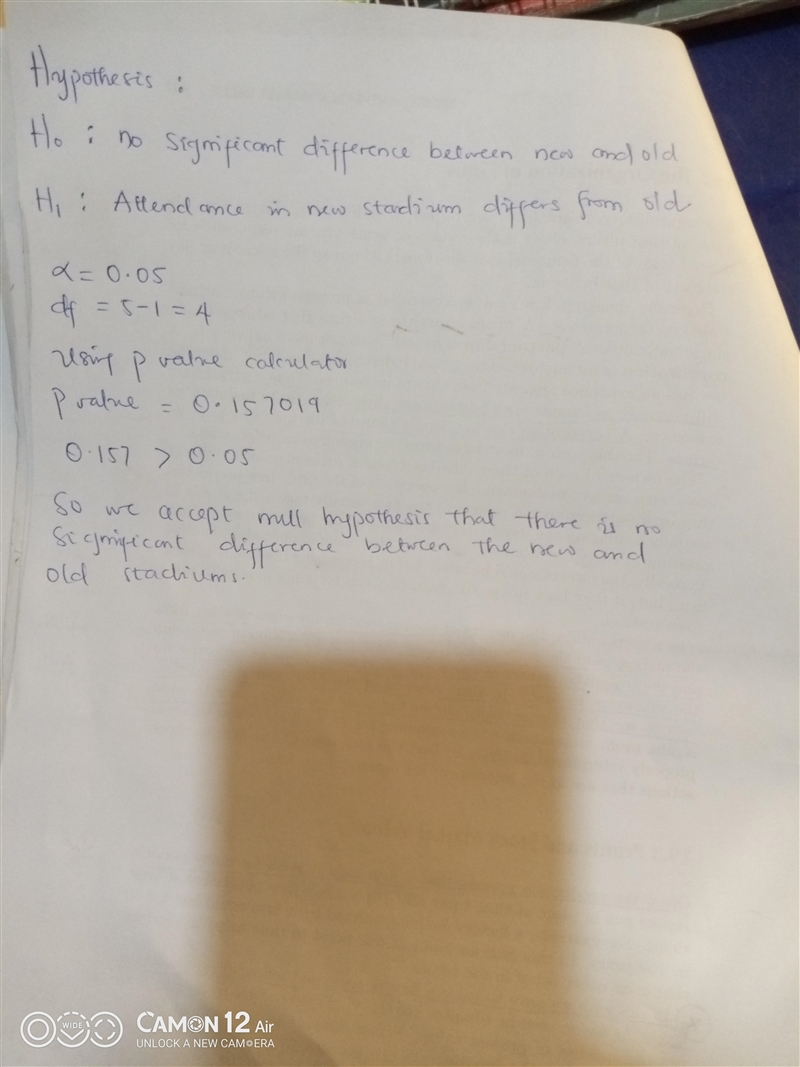 Hypothesis :
H₀ : no significant difference between new and old
H₁ : Attendance in new stadium differs from old
α = 0.05
df = 5-1 = 4
Using p value calculator
P value = 0.157019
0.157 > 0.05
So we accept null hypothesis that there is no
significant difference between the new and
old stadiums.
WIDE
CAMON 12 Air
UNLOCK A NEW CAMERA